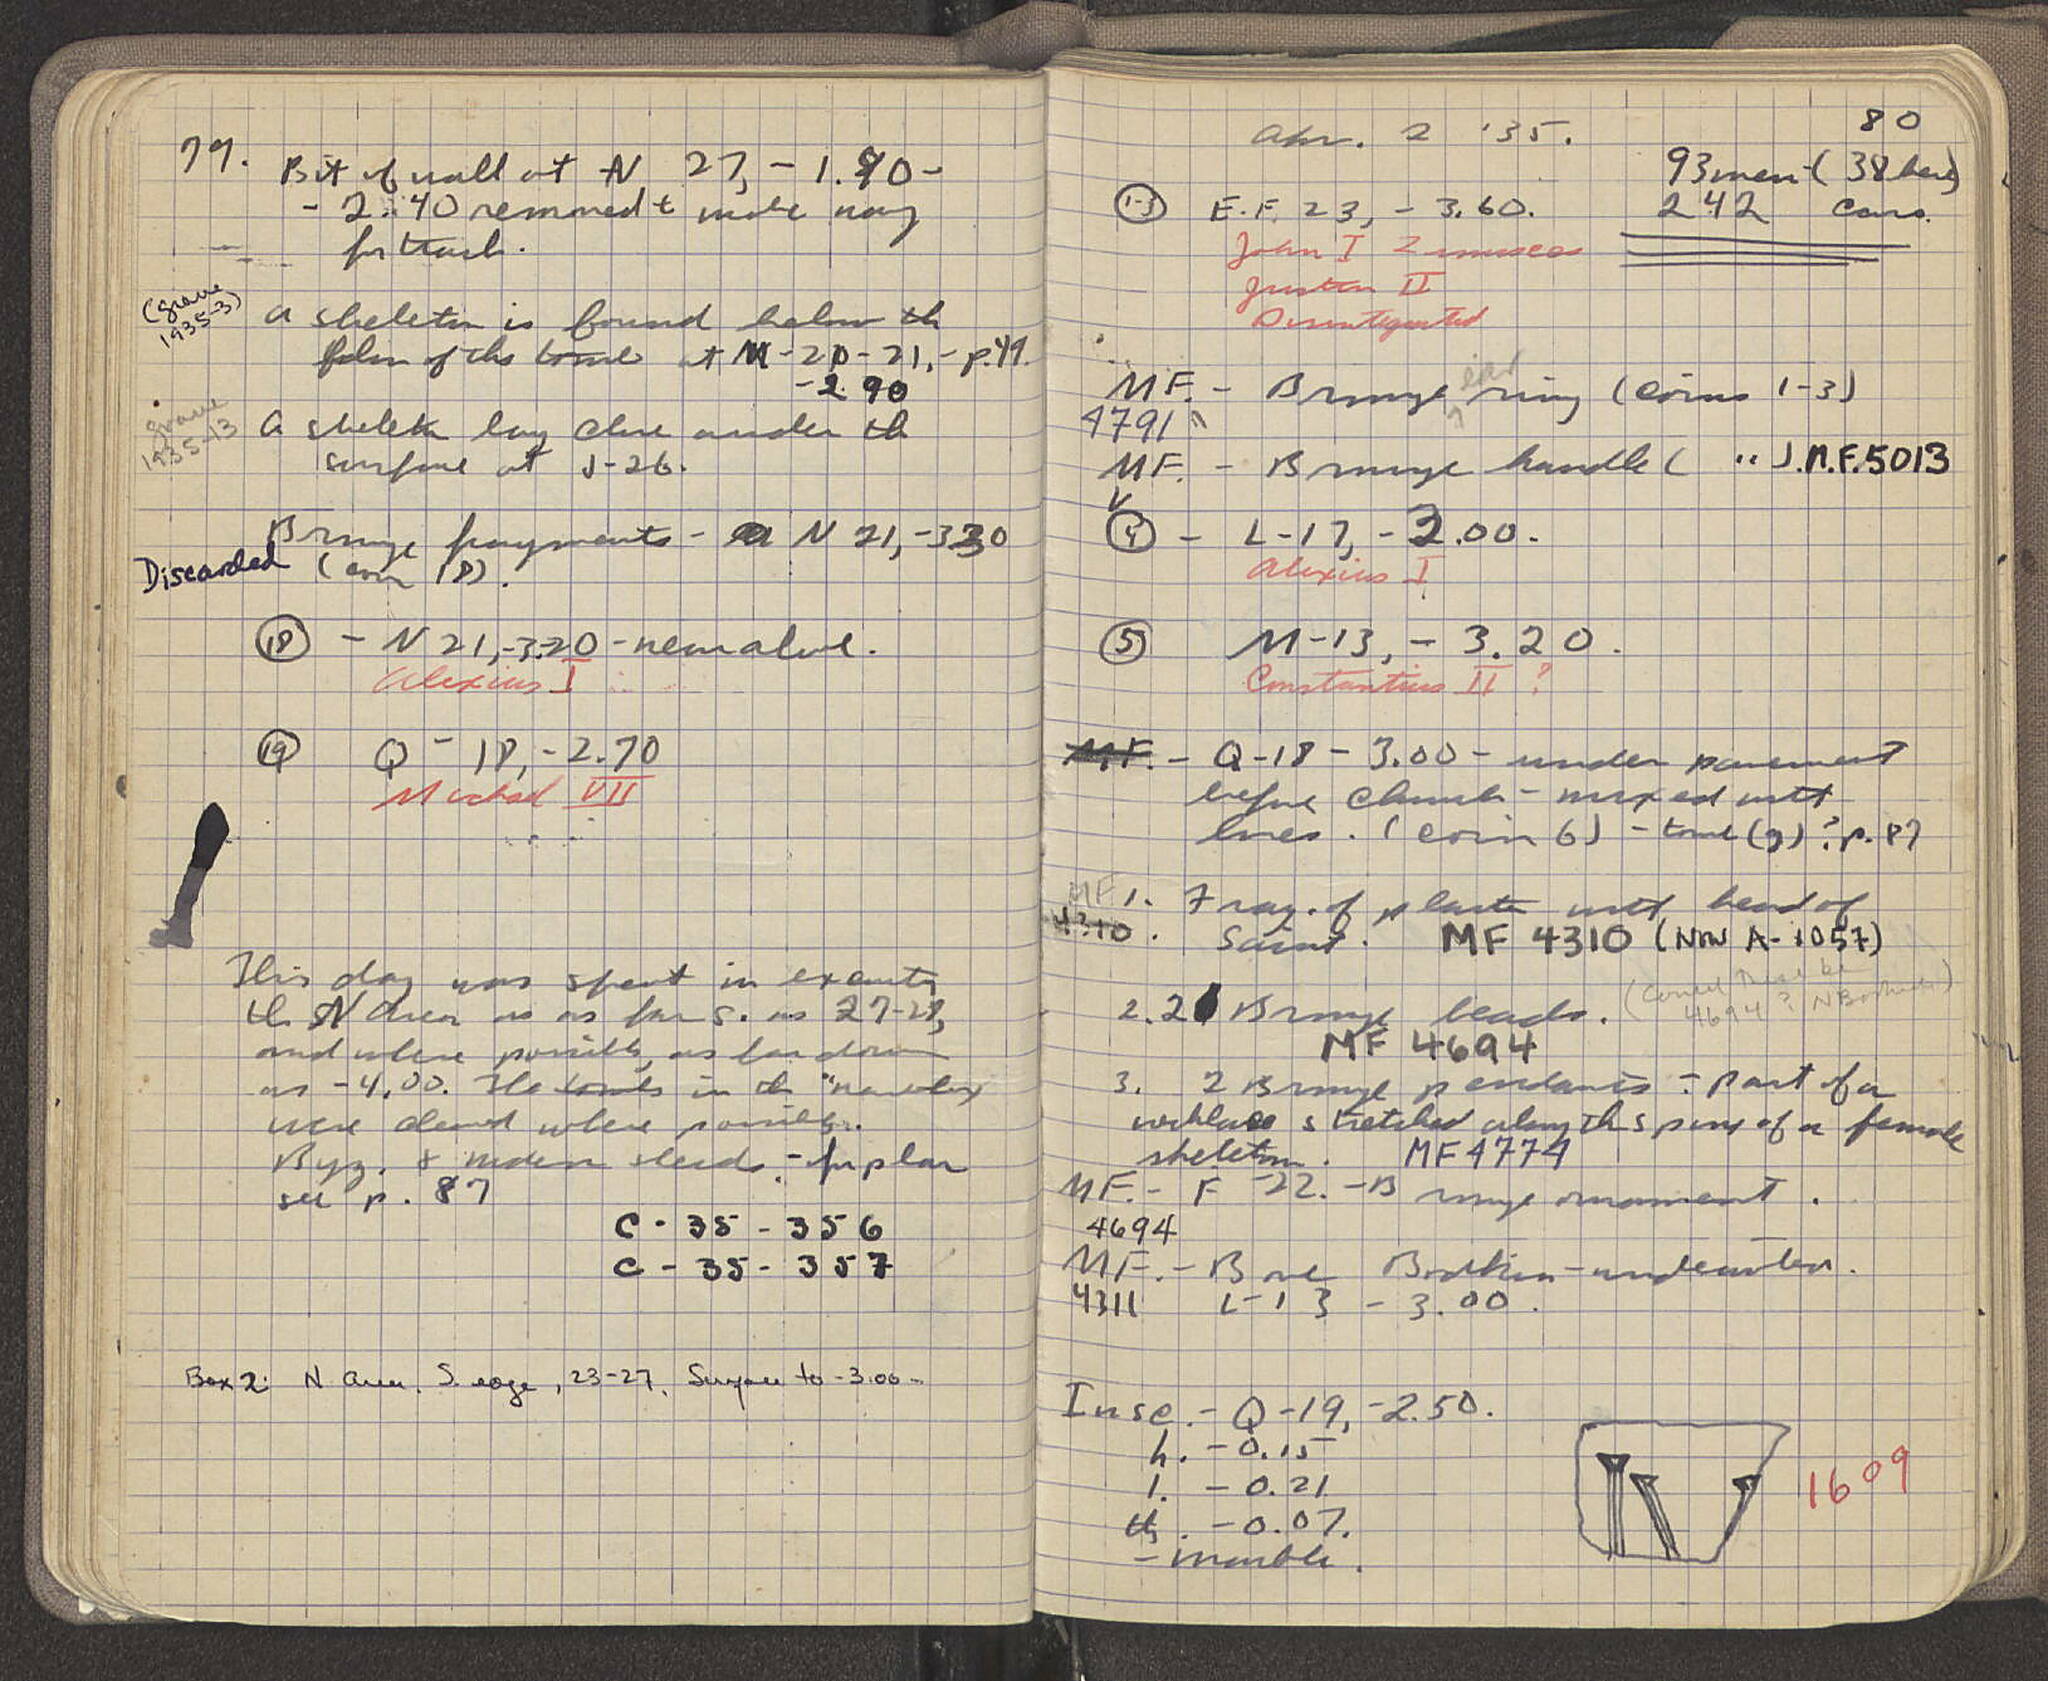 79.
Bit of wall at N 27, -1.90 -
- 2.40 removed to make way
for track.
(grave
1935-3)
A skeleton is found below the
floor of the tomb at M-20-21, - p. 49.
-2.90
grave
1935-13
A skeleton lay close under the
surface at J-26.
Bronze fragments - N 21, -3.30
Discarded (coin 18).
(18) - N 21, -3.20 - near above.
Alexius I
(19) Q - 18, -2.70
Michael VII
This day was spent in
the N Area as far S. as 27-28,
and where possible, as far down
as -4.00. The tombs in the
were cleared where possible.
Byz. & modern sherds. - for plan
see p. 87
C - 35 - 356
C - 35 - 357
Box 2: N Area, S. edge, 23-27, Surface to -3.00
80
Apr. 2 '35.
93 men - (38 here)
242 cars.
(1-3) E.F. 23, - 3.60.
John I Zimisces
Justin II
Disintegrated
MF. - Bronze ear ring (coins 1-3)
4791
MF. - Bronze handle ( " ). M.F. 5013
(4) - L-17, - 3.00.
Alexius I
(5) M-13, - 3.20.
Constantius II ?
MF. - Q-18 - 3.00 - under pavement
before church - mixed with
bones. (coin 6) - tomb (g)? p. 87
MF 1. Frag. of plaster with head of
4310. Saint. MF 4310 (Now A-1057)
2. 2 Bronze beads. (Could these be
4694? )
MF 4694
3. 2 Bronze pendants - part of a
necklace stretched along the spine of a female
skeleton. MF 4774
MF. - F - 22. - Bronze ornament.
4694
MF. - Bone Bodkin - undecorated.
4311 L-13 - 3.00.
Insc. - Q-19, -2.50.
h. - 0.15
l. - 0.21
th. - 0.07.
- marble.
IV
1609